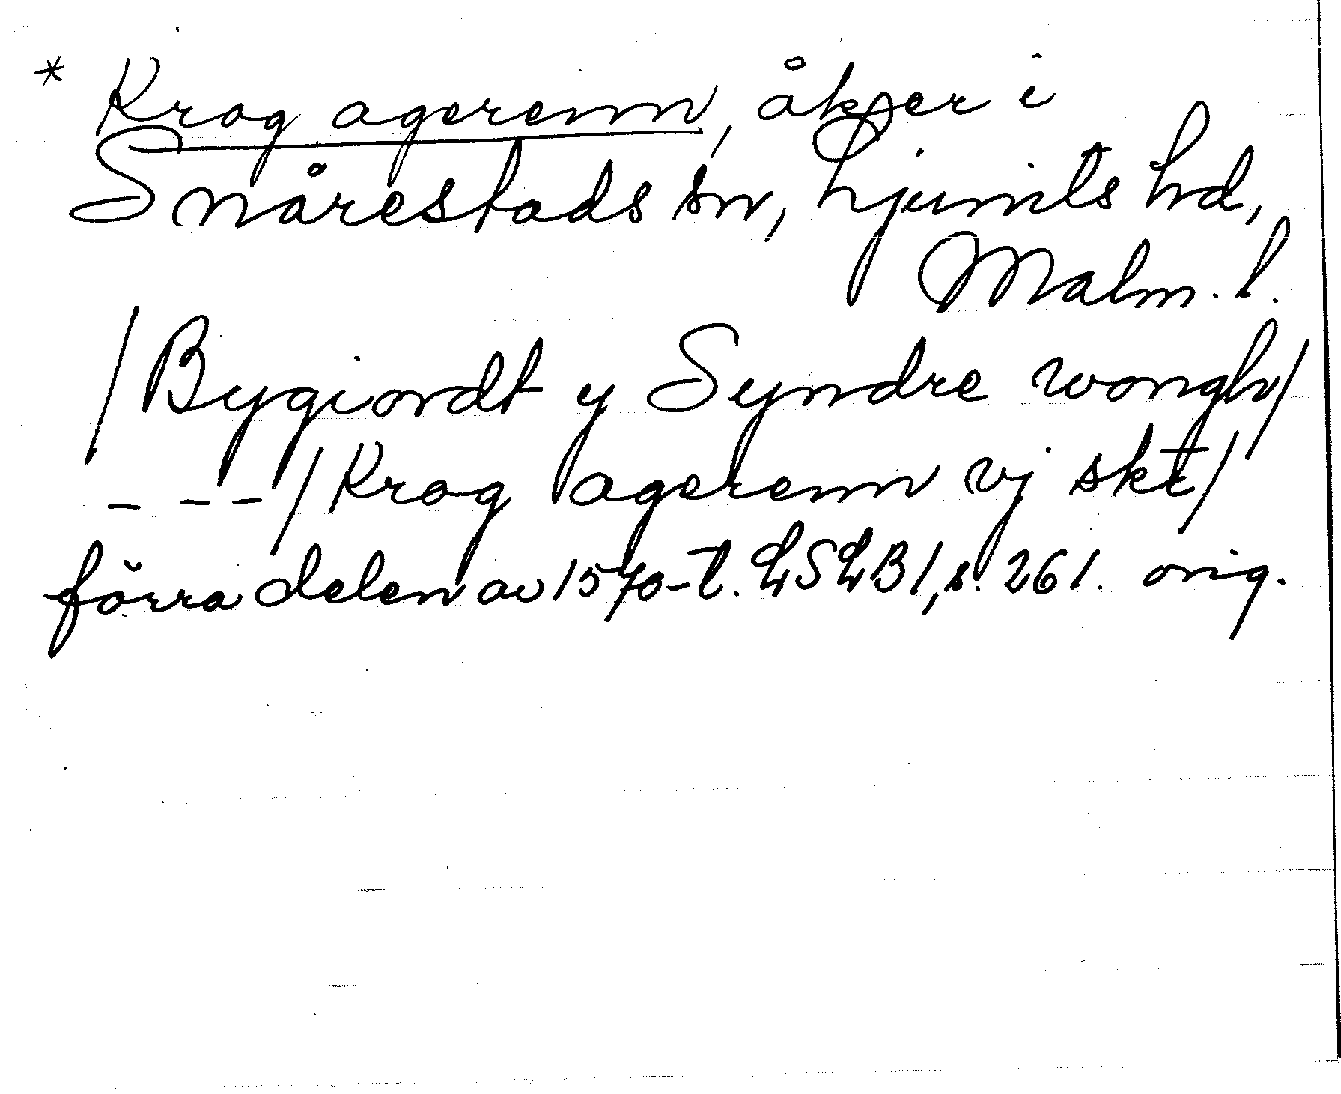 * Krog agerenn, åker i
Snårestads sn, Ljunits hd,
Malm. l.
/Bygiordt y Syndre wongh/
- - - /Krog agerenn vj skt/
förra delen av 1570-t. LSLB1, s. 261. orig.